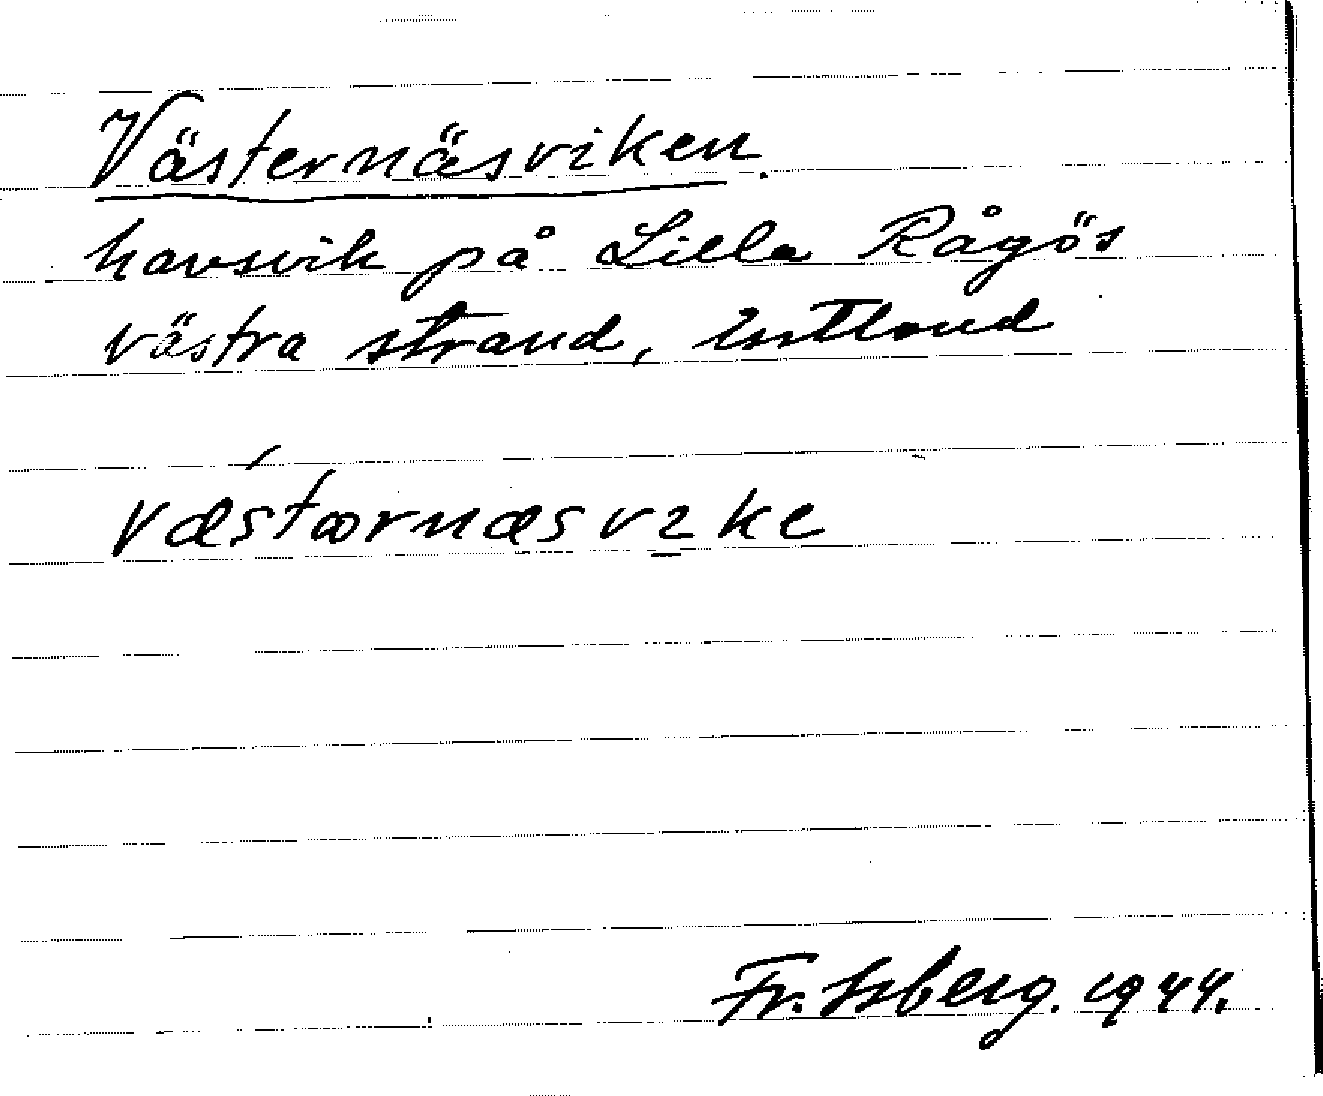 Västernäsviken.
havsvik på Lilla Rågös
västra strand, Estland
væstərnæsvike
Fr. Isberg. 1944.